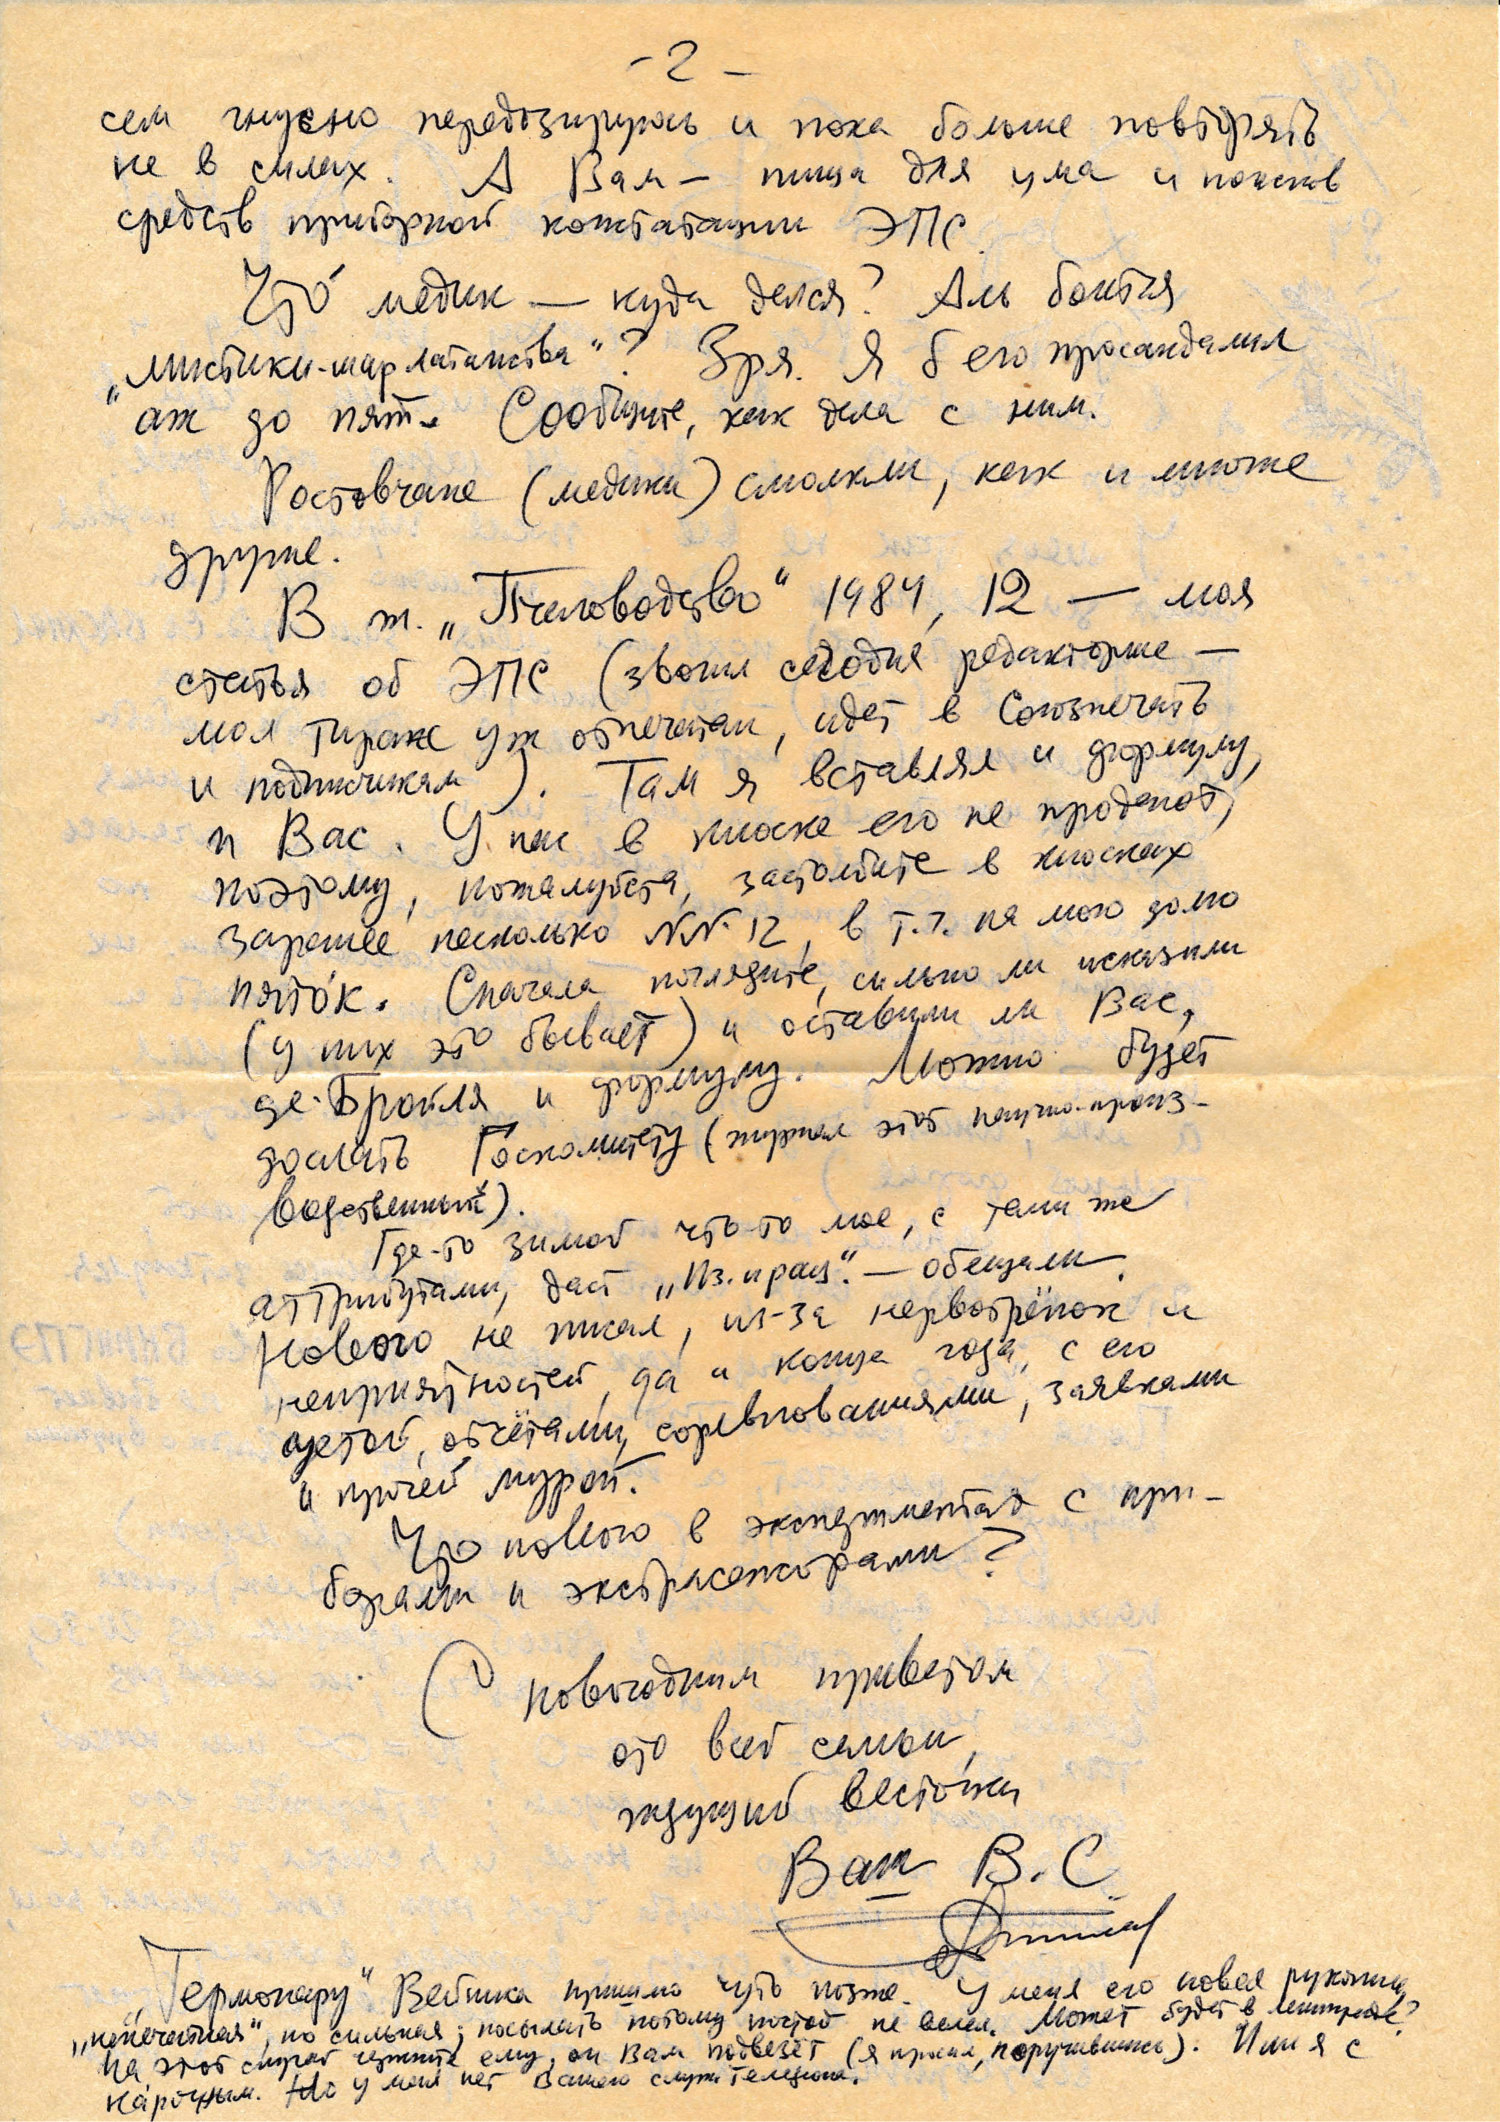 - 2 -
сем гнусно передозируюсь и пока больше повторять
не в силах. А Вам — пища для ума и поисков
средств приборной констатации ЭПС.
Что медик — куда делся? Аль боится
„мистики-шарлатанства"? Зря. Я б его просандалил
аж до пят. Сообщите, как дела с ним.
Ростовчане (медики) смолкли, как и многие
другие.
В ж. „Пчеловодство" 1984, 12 — моя
статья об ЭПС (звонил сегодня редакторше —
мол тираж уж отпечатан, идёт в Союзпечать
и подписчикам). Там я вставлял и формулу,
и Вас. У нас в киоске его не продают,
поэтому, пожалуйста, застолбите в киосках
заранее несколько №№ 12, в т.ч. на мою долю
пяток. Сначала поглядите, сильно ли исказили
(у них это бывает) и оставили ли Вас,
де-Бройля и формулу. Можно будет
дослать Госкомитету (журнал этот научно-произ-
водственный).
Где-то зимой что-то мое, с теми же
аттрибутами, даст „Из. и рац." — обещали.
Нового не писал, из-за нервотрёпок и
неприятностей, да и конца года, с его
суетой, отчётами, соревнованиями, заявками
и прочей мурой.
Что нового в экспериментах с при-
борами и экстрасенсорами?
С новогодним приветом
ото всей семьи,
ждущий весточки
Ваш В. С.
„Термопару" Вейника пришлю чуть позже. У меня его новая рукопись,
„непечатная", но сильная; посылать потому почтой не велел. Может будет в Ленинграде?
На этот случай ему, он Вам подвезёт (я просил, поручившись). Или я с
нарочным. Но у меня нет Вашего служ. телефона.